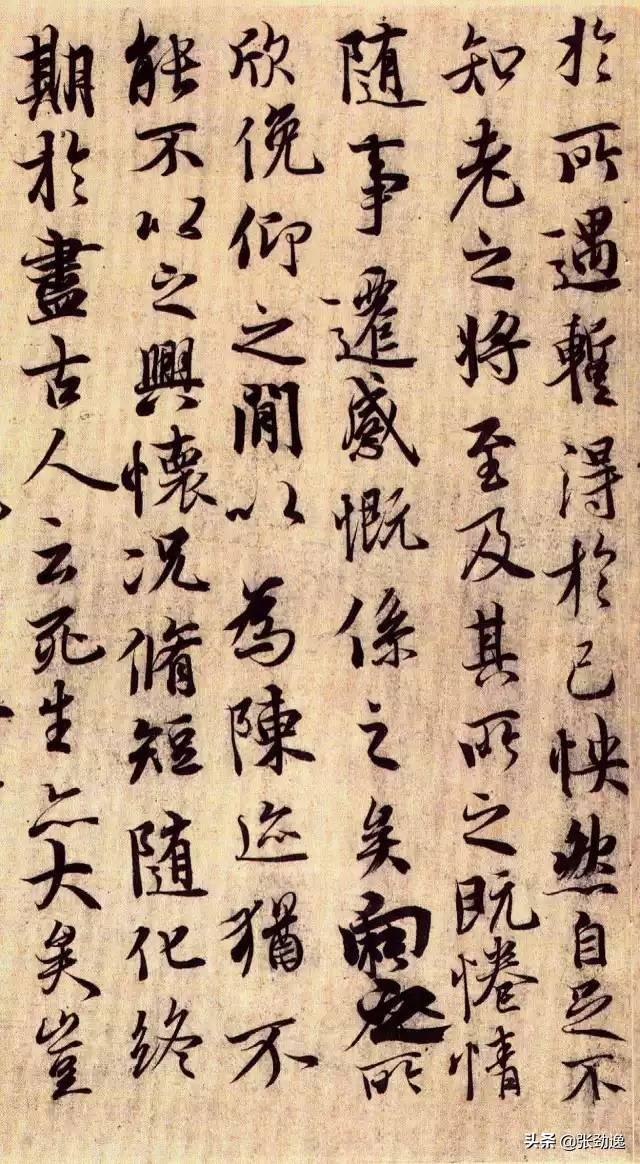 於所遇暫得於己怏然自足不
知老之將至及其所之既惓情
隨事遷感慨係之矣向之所
欣俛仰之閒以為陳迹猶不
能不以之興懷况脩短隨化終
期於盡古人云死生亦大矣豈
头条 @张劲逸